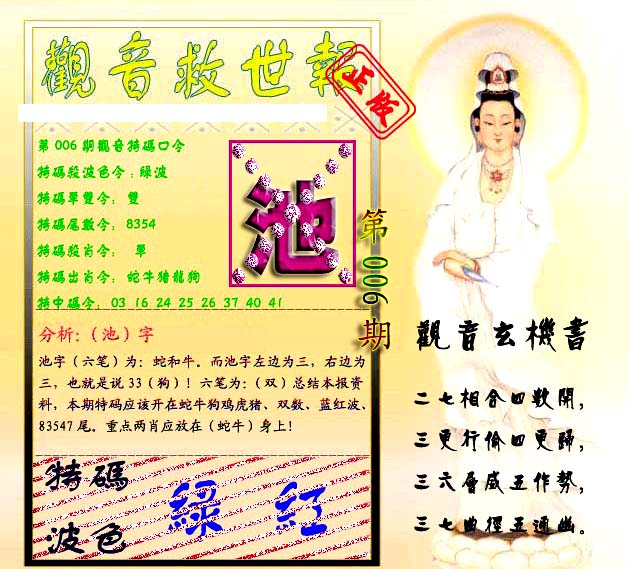 觀音救世報
正版
第006期觀音特碼口令
特碼殺波色令：綠波
特碼單雙令： 雙
特碼尾數令： 8354
特碼殺肖令： 單
特碼出肖令： 蛇牛猪龍狗
特中碼令： 03 16 24 25 26 37 40 41
池
第006期
分析：（池）字
池字（六笔）为：蛇和牛。而池字左边为三，右边为
三，也就是说 33（狗）！六笔为：（双）总结本报资
料，本期特码应该开在蛇牛狗鸡虎猪、双数、蓝红波、
83547 尾。重点两肖应放在（蛇牛）身上！
特碼
波色
綠 紅
觀音玄機書
二七相合四數開，
三更行偷四更歸，
三六層威五作勢，
三七曲徑五通幽。